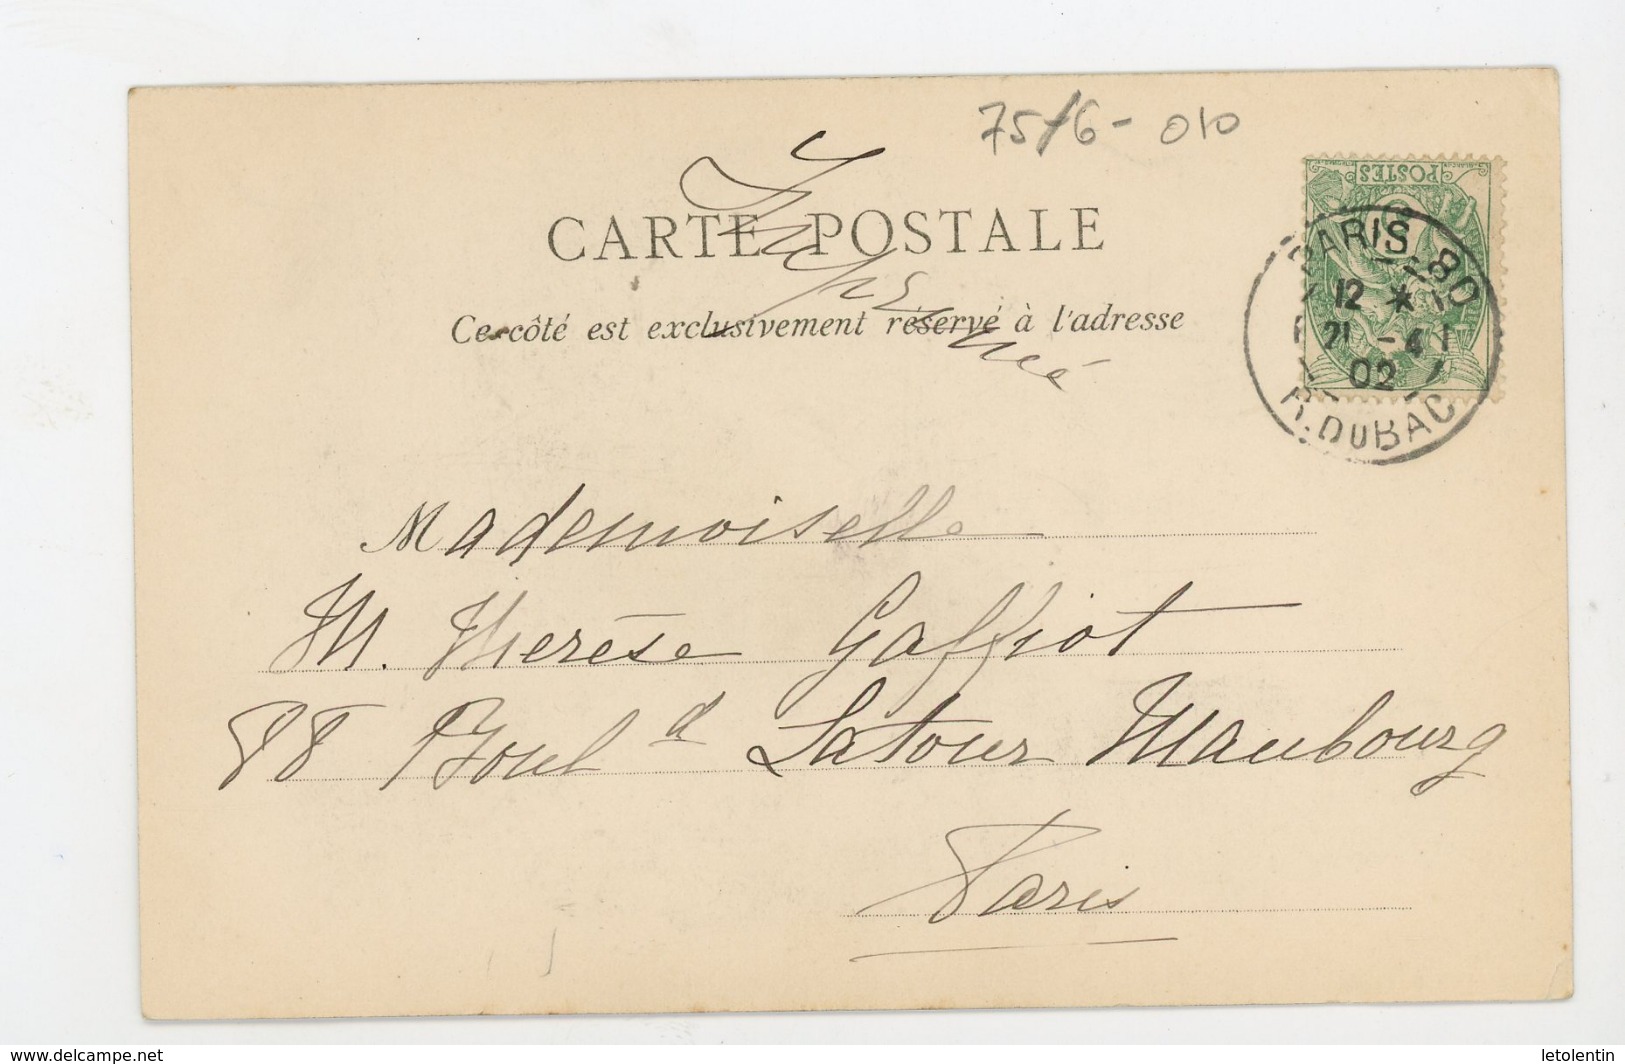 75/6 - 010
POSTES
CARTE POSTALE
Imprimé
Ce côté est exclusivement réservé à l'adresse
PARIS - 80
12 *
21 - 4
02
R. DU BAC
Mademoiselle
M. Therèse Gaffiot
88 Boul d Latour Maubourg
Paris
www.delcampe.net
letolentin